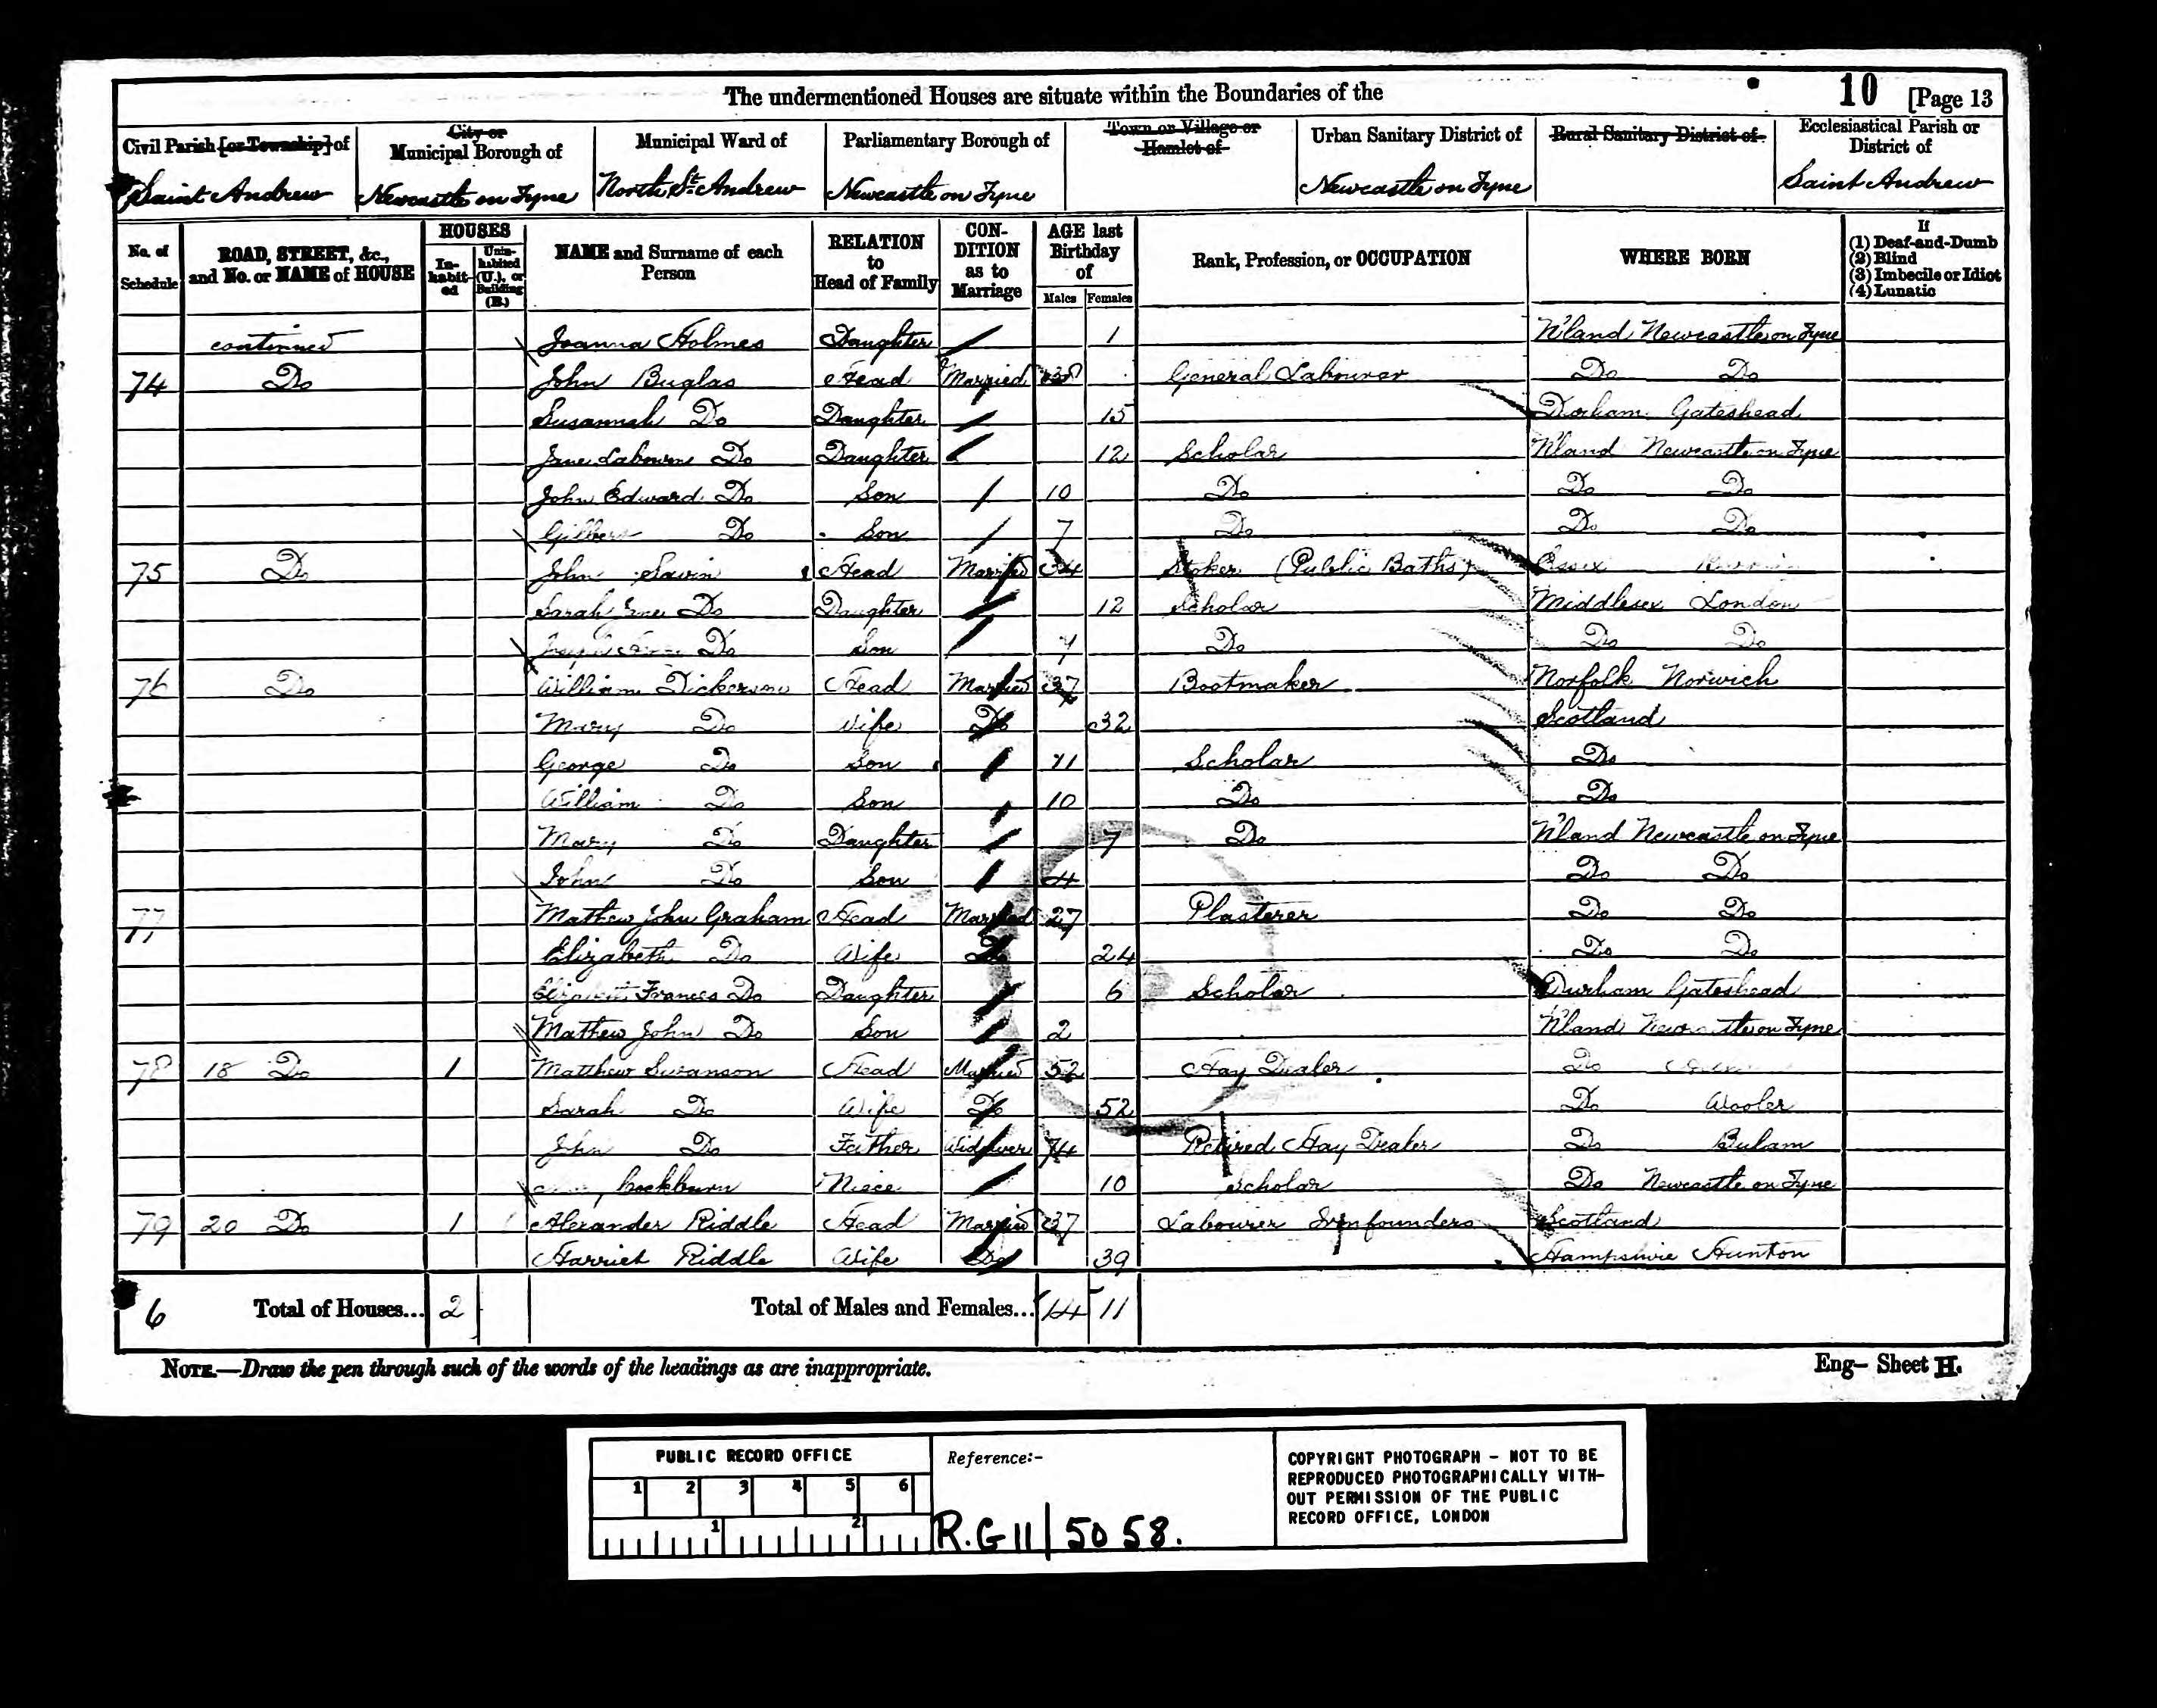 The undermentioned Houses are situate within the Boundaries of the
10 [Page 13
Civil Parish [or Township] of
City or Municipal Borough of
Municipal Ward of
Parliamentary Borough of
Town or Village or Hamlet of
Urban Sanitary District of
Rural Sanitary District of
Ecclesiastical Parish or District of
Saint Andrew
Newcastle on Tyne
North St. Andrew
Newcastle on Tyne
Newcastle on Tyne
Saint Andrew
No. of Schedule
ROAD, STREET, &c., and No. or NAME of HOUSE
HOUSES
In-habit-ed
Unin-habited (U.), or Building (B.)
NAME and Surname of each Person
RELATION to Head of Family
CON-DITION as to Marriage
AGE last Birthday of
Males Females
Rank, Profession, or OCCUPATION
WHERE BORN
If
(1) Deaf-and-Dumb
(2) Blind
(3) Imbecile or Idiot
(4) Lunatic
continued Joanna Holmes Daughter 1 N'land Newcastle on Tyne
74 Do John Buglas Head Married General Labourer Do Do
Susannah Do Daughter 15 Durham Gateshead
Jane Labourn Do Daughter 12 Scholar N'land Newcastle on Tyne
John Edward Do Son 10 Do Do Do
Do Son 7 Do Do Do
75 Do John Savin Head Married 34 Stoker (Public Baths) Essex
Sarah Do Daughter 12 Scholar Middlesex London
Do Son Do Do Do
76 Do William Dickerson Head Married 37 Bootmaker Norfolk Norwich
Mary Do Wife Do 32 Scotland
George Do Son 11 Scholar Do
William Do Son 10 Do Do
Mary Do Daughter 7 Do N'land Newcastle on Tyne
John Do Son 4 Do Do
77 Mathew John Graham Head Married 27 Plasterer Do Do
Elizabeth Do Wife Do 24 Do Do
Elizabeth Frances Do Daughter 6 Scholar Durham Gateshead
Mathew John Do Son 2 N'land Newcastle on Tyne
78 18 Do 1 Matthew Swanson Head Married 52 Hay Dealer Do
Sarah Do Wife Do 52 Do Wooler
John Do Father Widower 74 Retired Hay Dealer Do Bulam
Cockburn Niece 10 Scholar Do Newcastle on Tyne
79 20 Do 1 Alexander Riddle Head Married 37 Labourer Ironfounders Scotland
Harriet Riddle Wife Do 39 Hampshire Hunton
6 Total of Houses... 2 Total of Males and Females... 14 11
NOTE.—Draw the pen through such of the words of the headings as are inappropriate.
Eng— Sheet H.
PUBLIC RECORD OFFICE
1 2 3 4 5 6
1 2
Reference:-
R.G 11/5058.
COPYRIGHT PHOTOGRAPH - NOT TO BE
REPRODUCED PHOTOGRAPHICALLY WITH-
OUT PERMISSION OF THE PUBLIC
RECORD OFFICE, LONDON